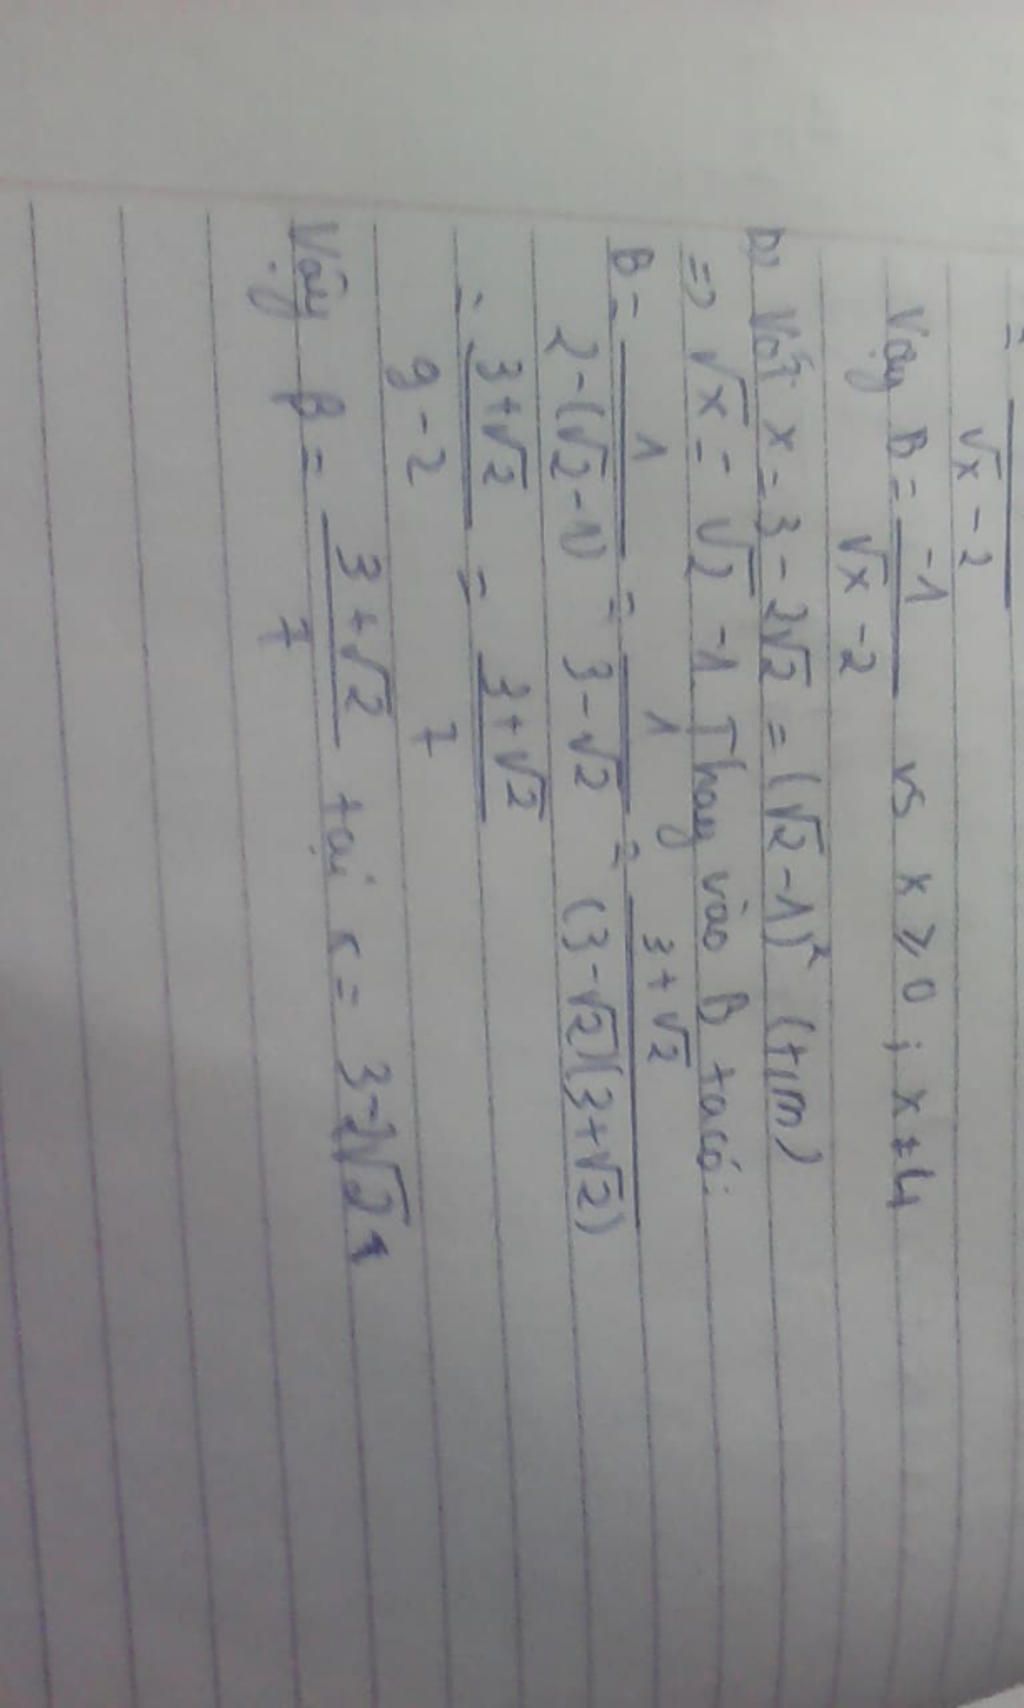 = ―――
√x - 2
Vậy B = -1/(√x - 2) vs x ≥ 0 ; x ≠ 4
b) Với x = 3 - 2√2 = (√2 - 1)² (t/m)
=> √x = √2 - 1. Thay vào B ta có:
B = 1/(2 - (√2 - 1)) = 1/(3 - √2) = (3 + √2)/((3 - √2)(3 + √2))
= (3 + √2)/(9 - 2) = (3 + √2)/7
Vậy B = (3 + √2)/7 tại x = 3 - 2√2